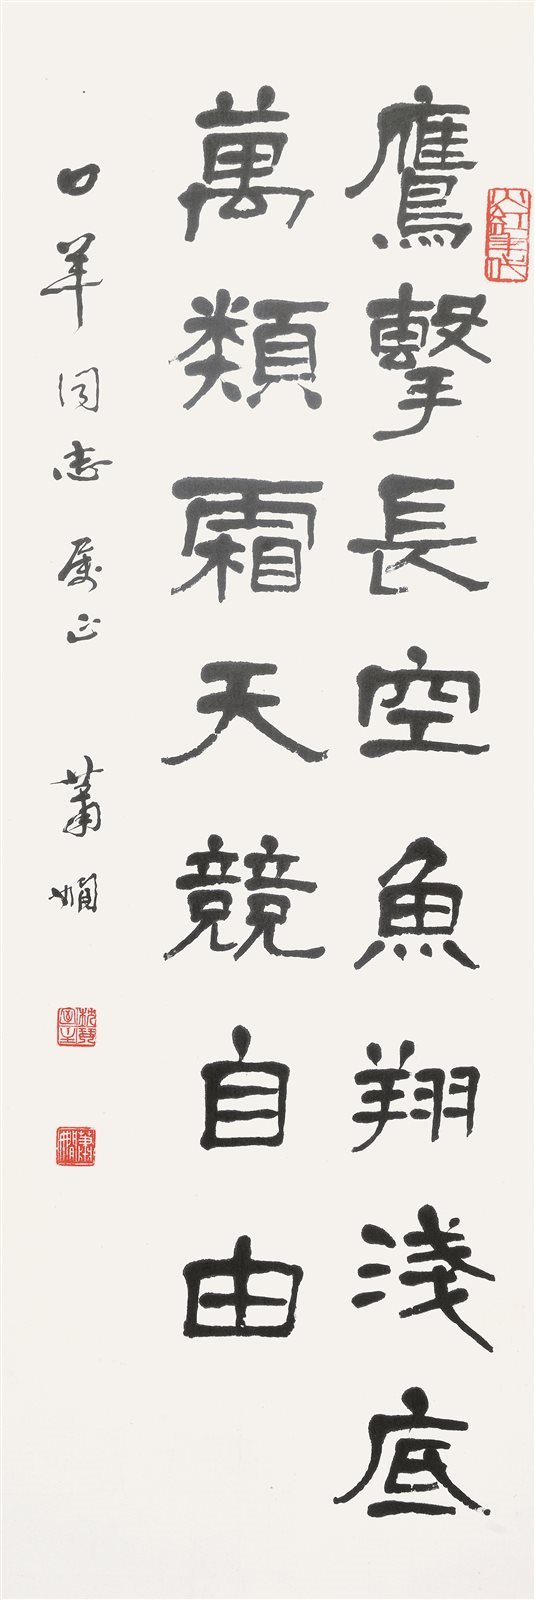 鷹擊長空魚翔淺底
萬類霜天競自由
羊同志屬正 蕭嫻